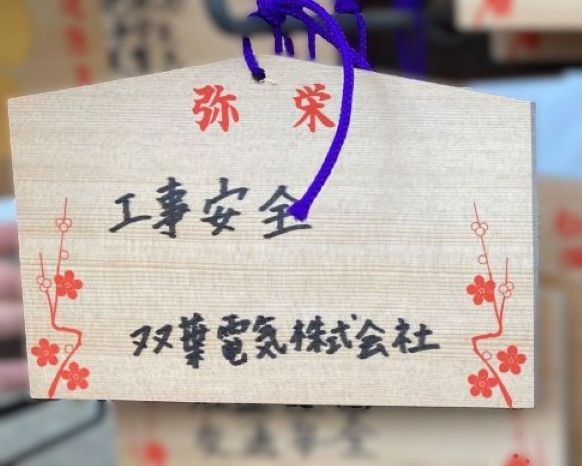 弥 栄
工事安全
双華電気株式会社